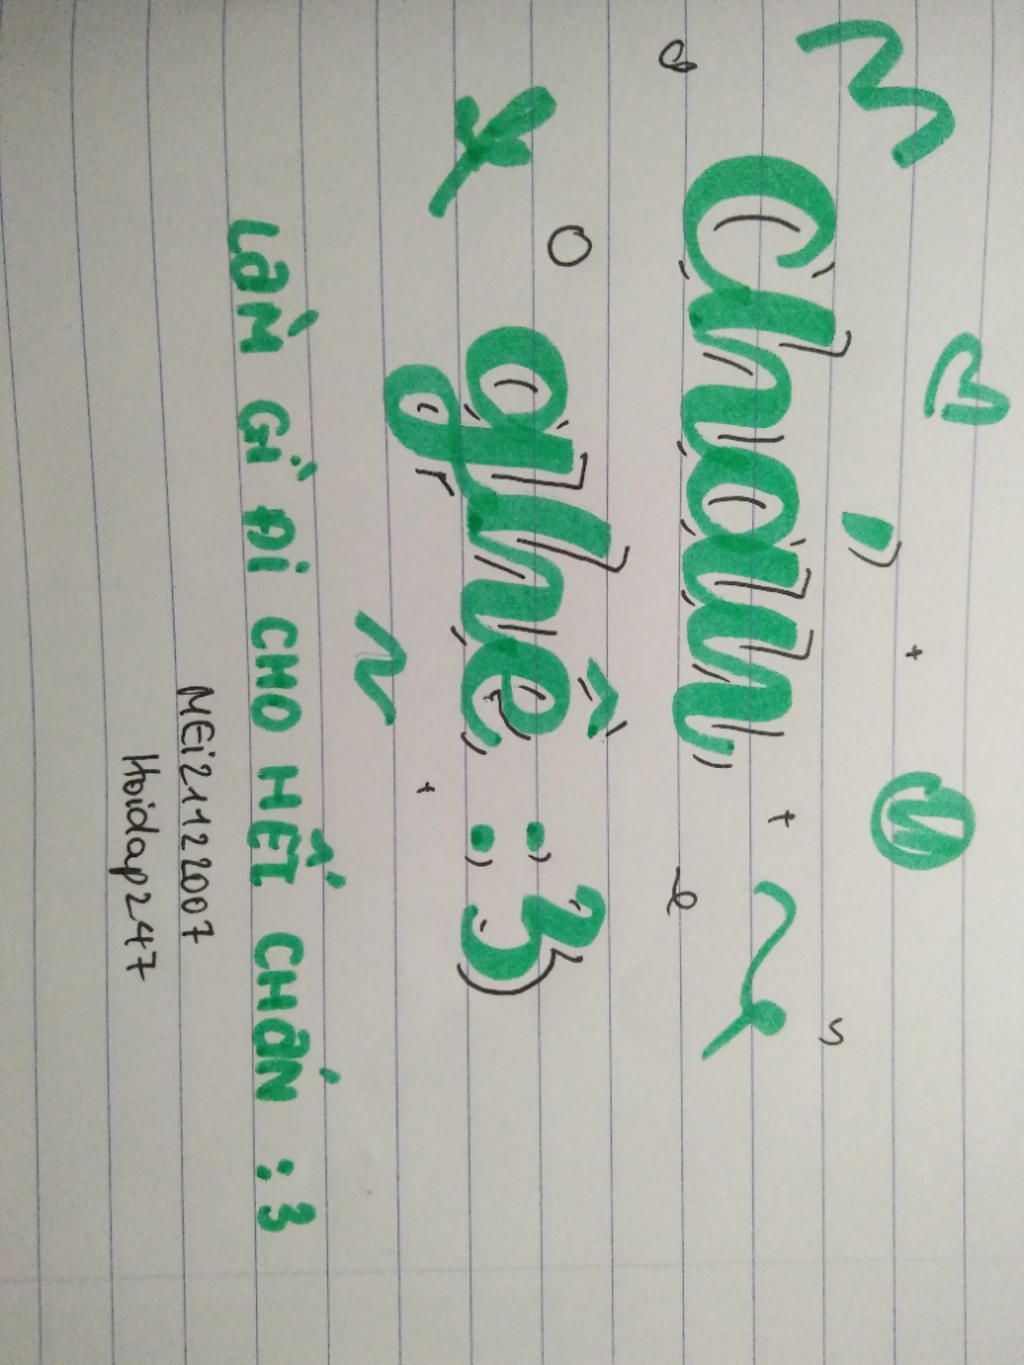 Chán
ghê :3
LÀM GÌ ĐI CHO HẾT CHÁN :3
MEi21122007
Hoidap247